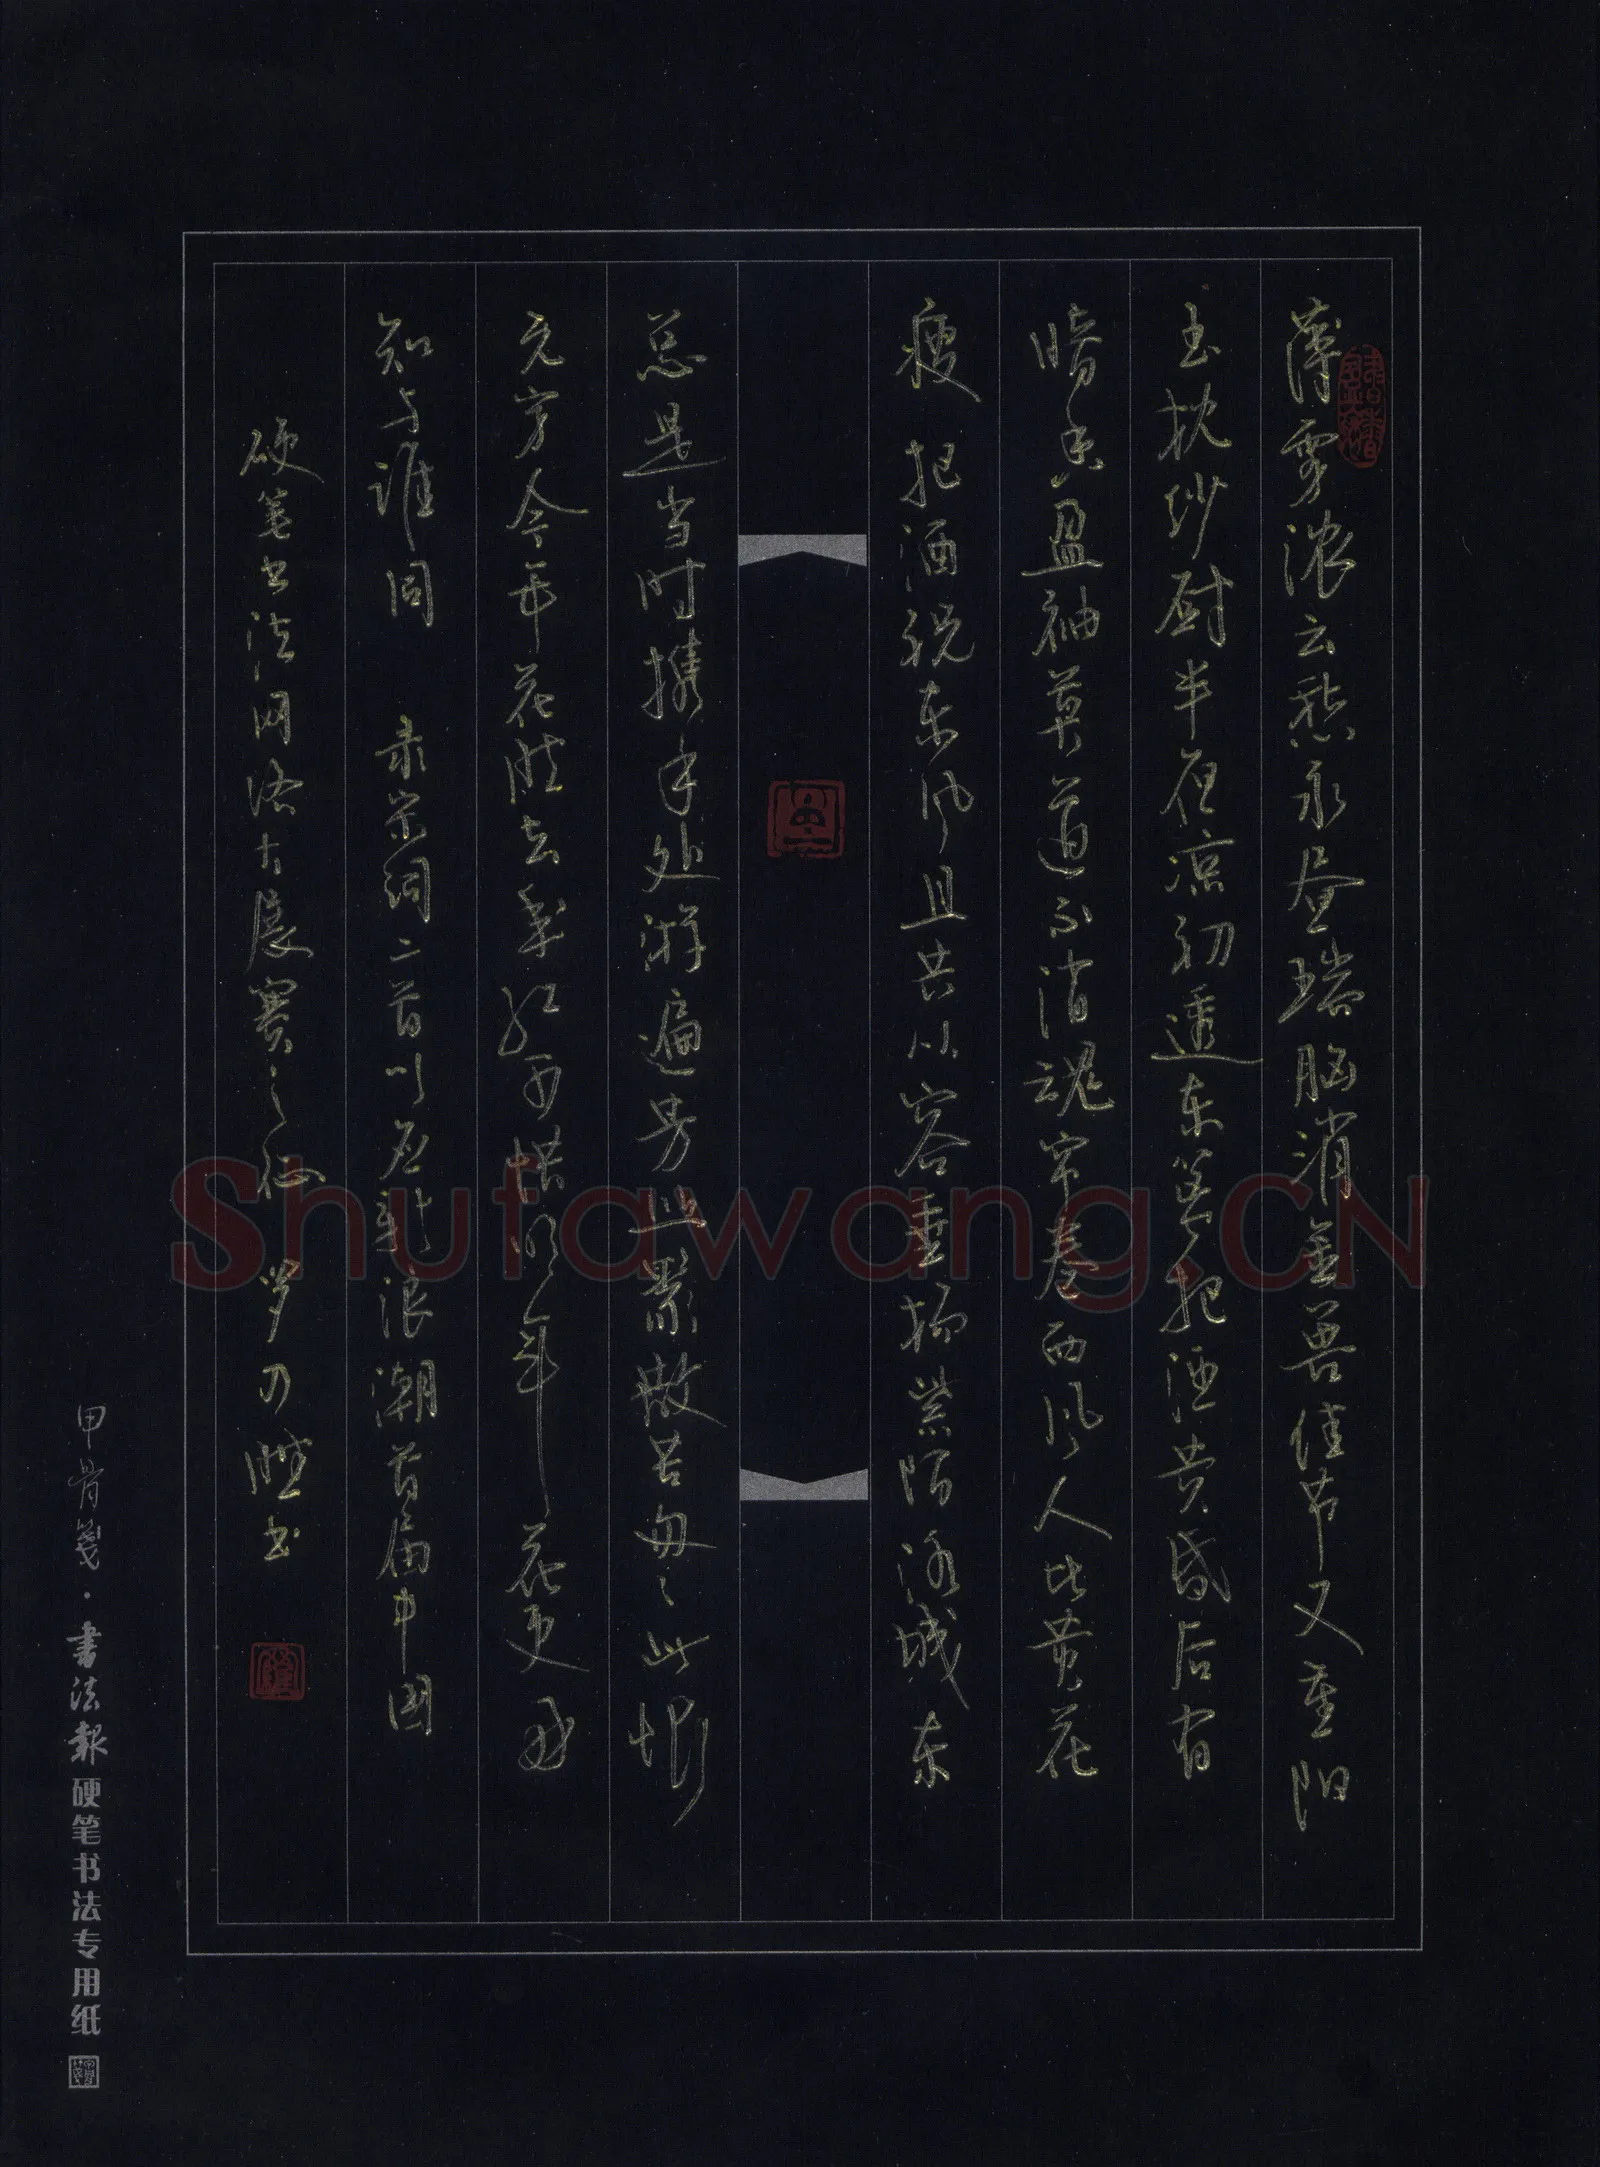 薄雾浓云愁永昼瑞脑消金兽佳节又重阳
玉枕纱厨半夜凉初透东篱把酒黄昏后有
暗香盈袖莫道不消魂帘卷西风人比黄花
瘦 把酒祝东风且共从容垂杨紫陌洛城东
总是当时携手处游遍芳丛聚散苦匆匆此恨
无穷今年花胜去年红可惜明年花更好
知与谁同 录宋词二首以应新浪潮首届中国
硬笔书法网络大展赛之征 罗 胜书
甲骨笺·書法報硬笔书法专用纸
Shufawang.CN